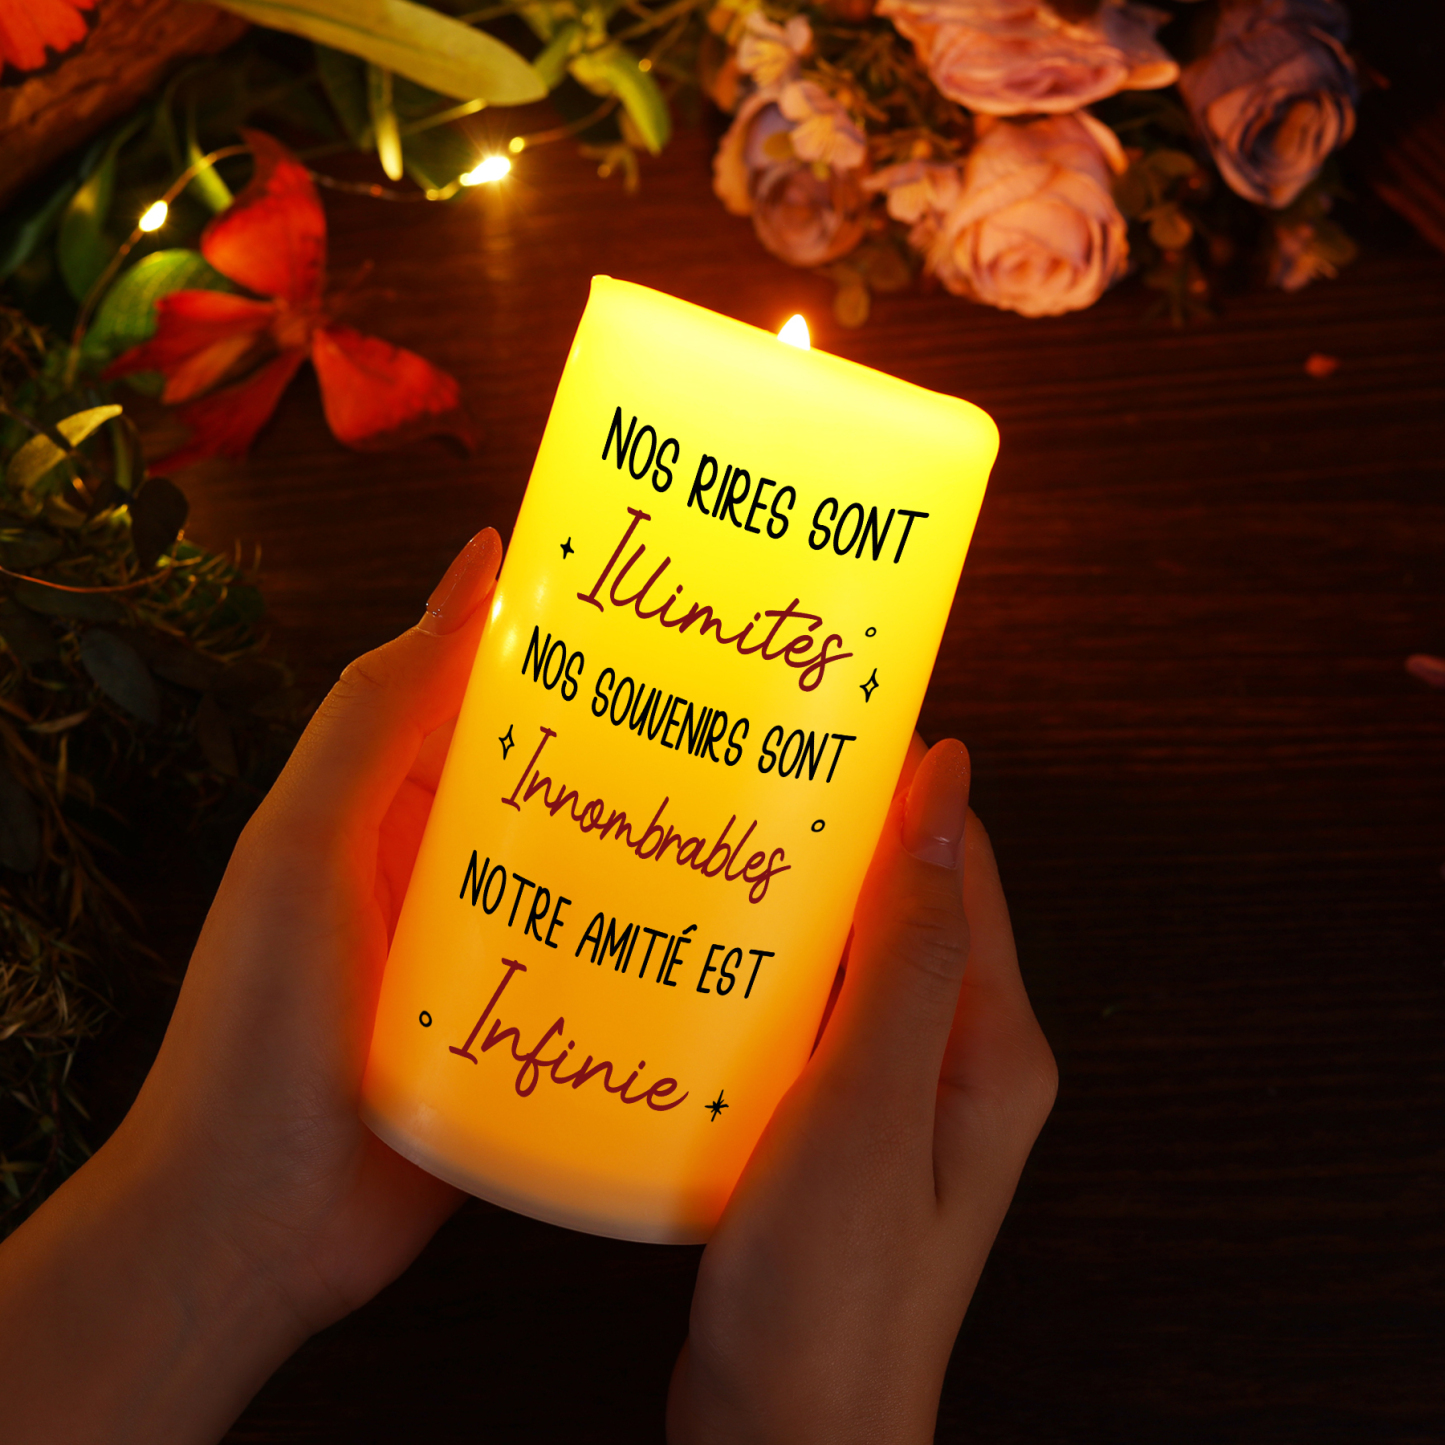 NOS RIRES SONT
Illimités
NOS SOUVENIRS SONT
Innombrables
NOTRE AMITIÉ EST
Infinie